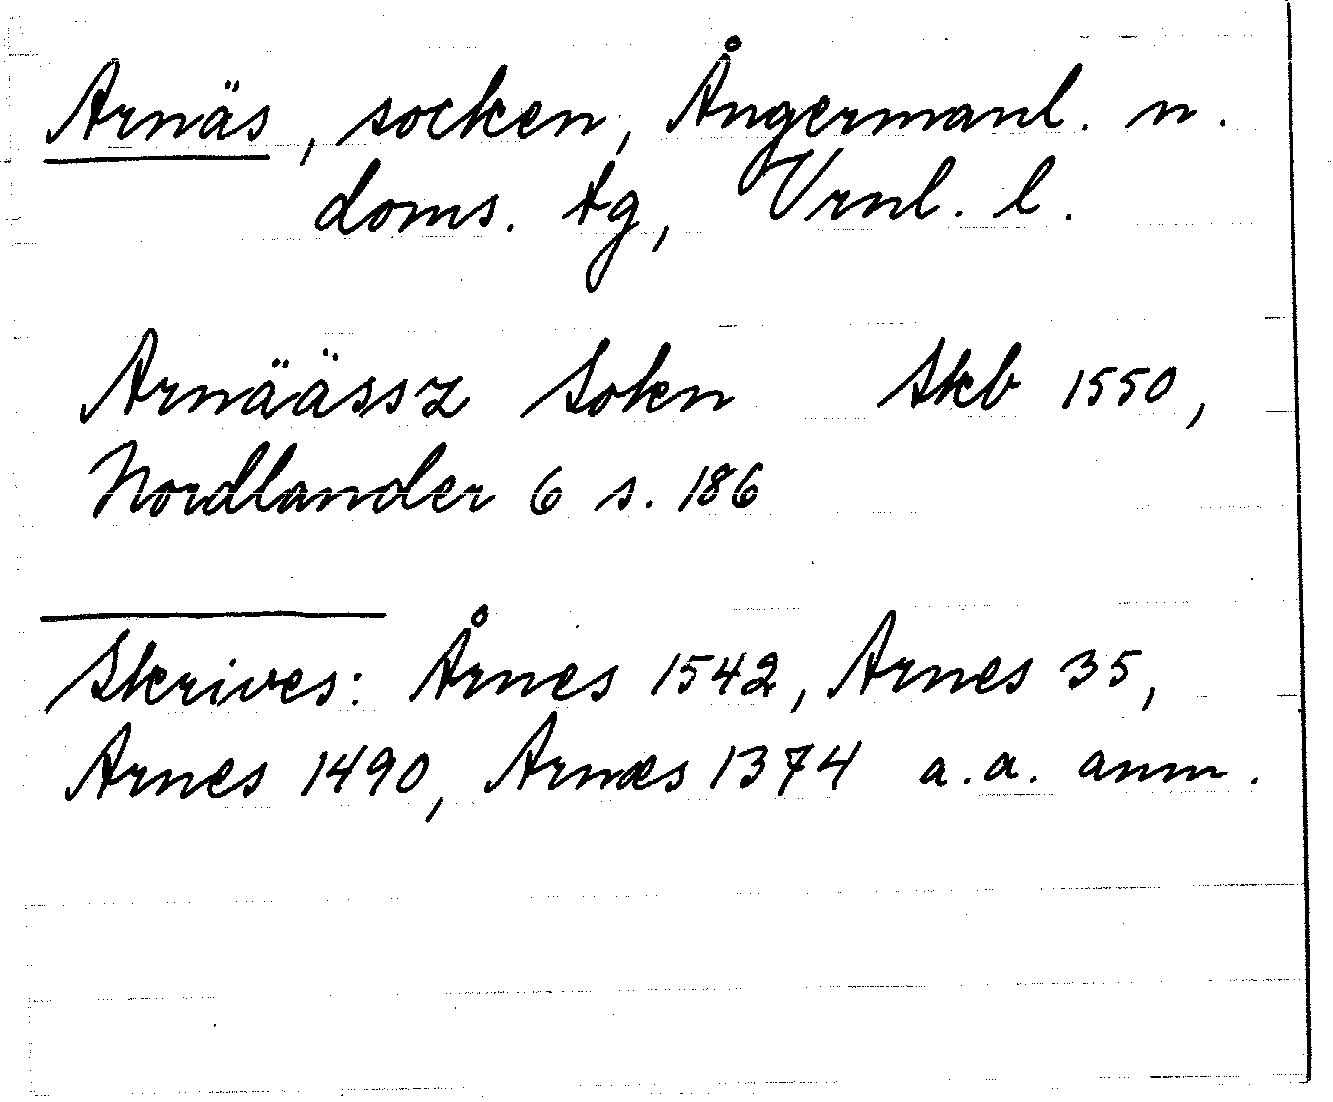 Arnäs, socken, Ångermanl. n.
doms. tg, Vrnl. l.
Arnäässz Sokn Skb 1550,
Nordlander 6 s. 186
Skrives: Årnes 1542, Arnes 35,
Arnes 1490, Arnæs 1374 a.a. anm.